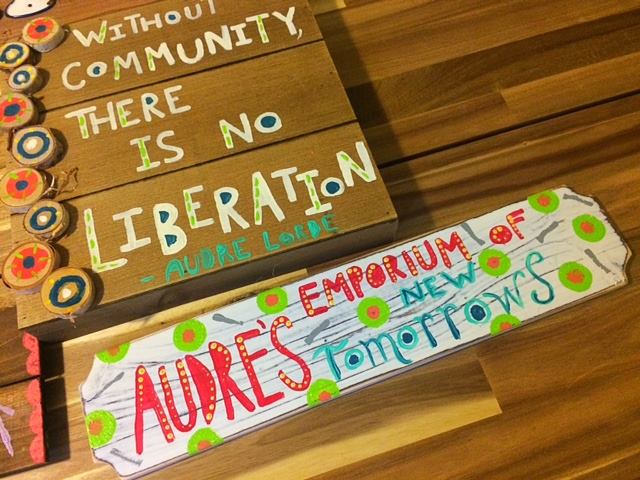 WITHOUT
COMMUNITY,
THERE
IS NO
LIBERATION
- AUDRE LORDE
AUDRE'S EMPORIUM OF
NEW
TOMORROWS